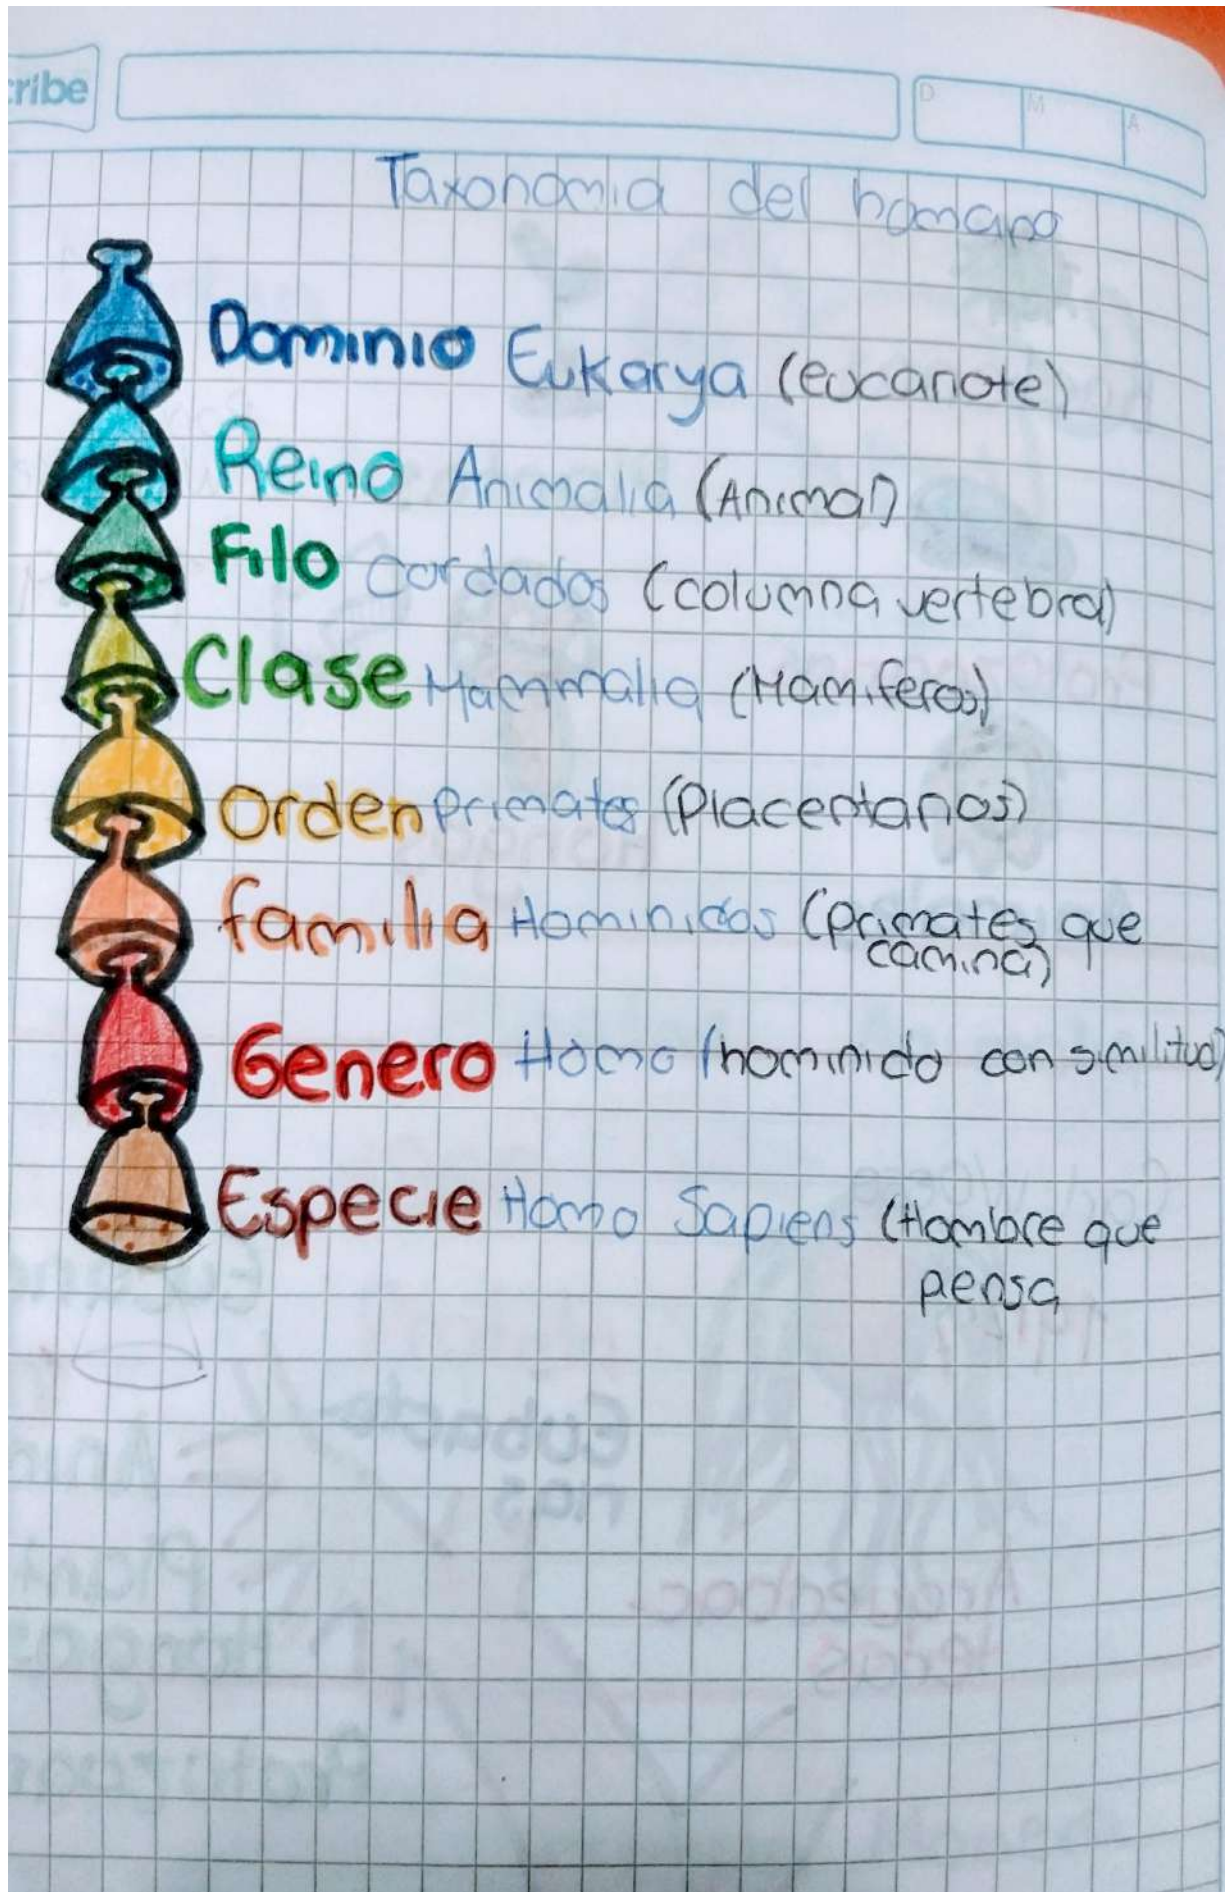 cribe
D M A
Taxonomia del homano
Dominio Eukarya (eucariote)
Reino Animalia (Animal)
Filo cordados (columna vertebral)
Clase Mammalia (Mamiferos)
Orden Primates (Placentarios)
familia Hominidos (primates que
camina)
Genero Homo (hominido con similitud)
Especie Homo Sapiens (Hombre que
pensa